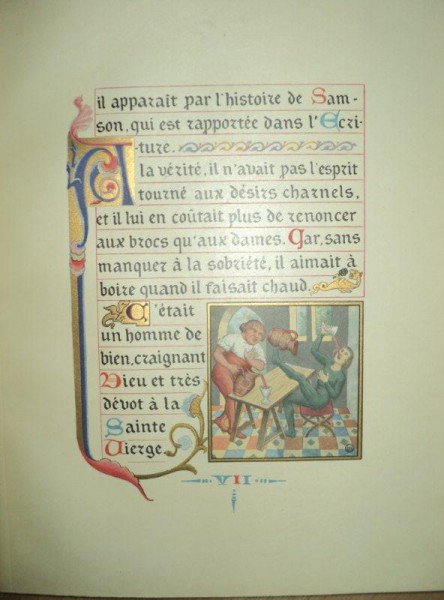 il apparaît par l'histoire de Sam-
son, qui est rapportée dans l'Écri-
ture.
A la vérité, il n'avait pas l'esprit
tourné aux désirs charnels,
et il lui en coûtait plus de renoncer
aux brocs qu'aux dames. Car, sans
manquer à la sobriété, il aimait à
boire quand il faisait chaud.
C'était
un homme de
bien, craignant
Dieu et très
dévot à la
Sainte
Vierge.
VII